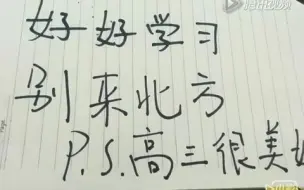 好好学习
别来北方
P.S.高三很美好